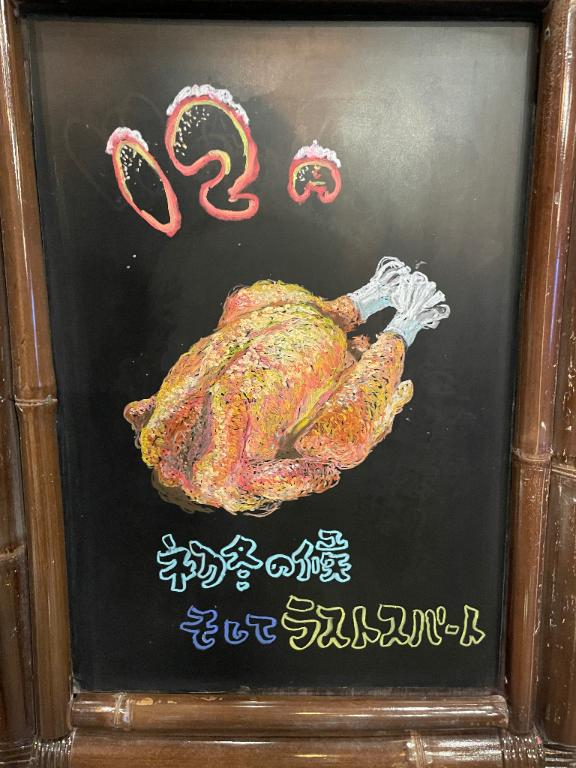 12月
初冬の候
そしてラストスパート